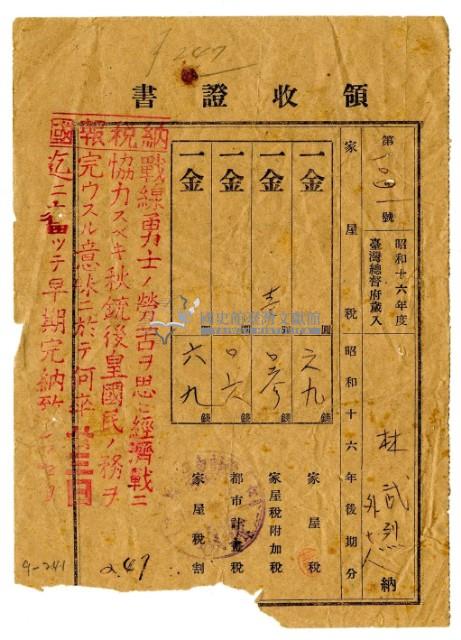 247
領收證書
第 號
昭和十六年度
臺灣總督府歲入
林武烈
外 人
納
家屋稅 昭和十六年後期分
一金 圓 六九錢 家屋稅
一金 圓 錢 家屋稅附加稅
一金 〇六錢 都市計畫稅
一金 六九錢 家屋稅割
納稅報國
戰線勇士ノ勞苦ヲ思ヒ經濟戰ニ
協力スベキ秋銃後皇國民ノ務ヲ
完ウスル意味ニ於テ何卒
迄ニ ッテ早期完納致
247
9-241
國史館臺灣文獻館
TAIWAN HISTORICA